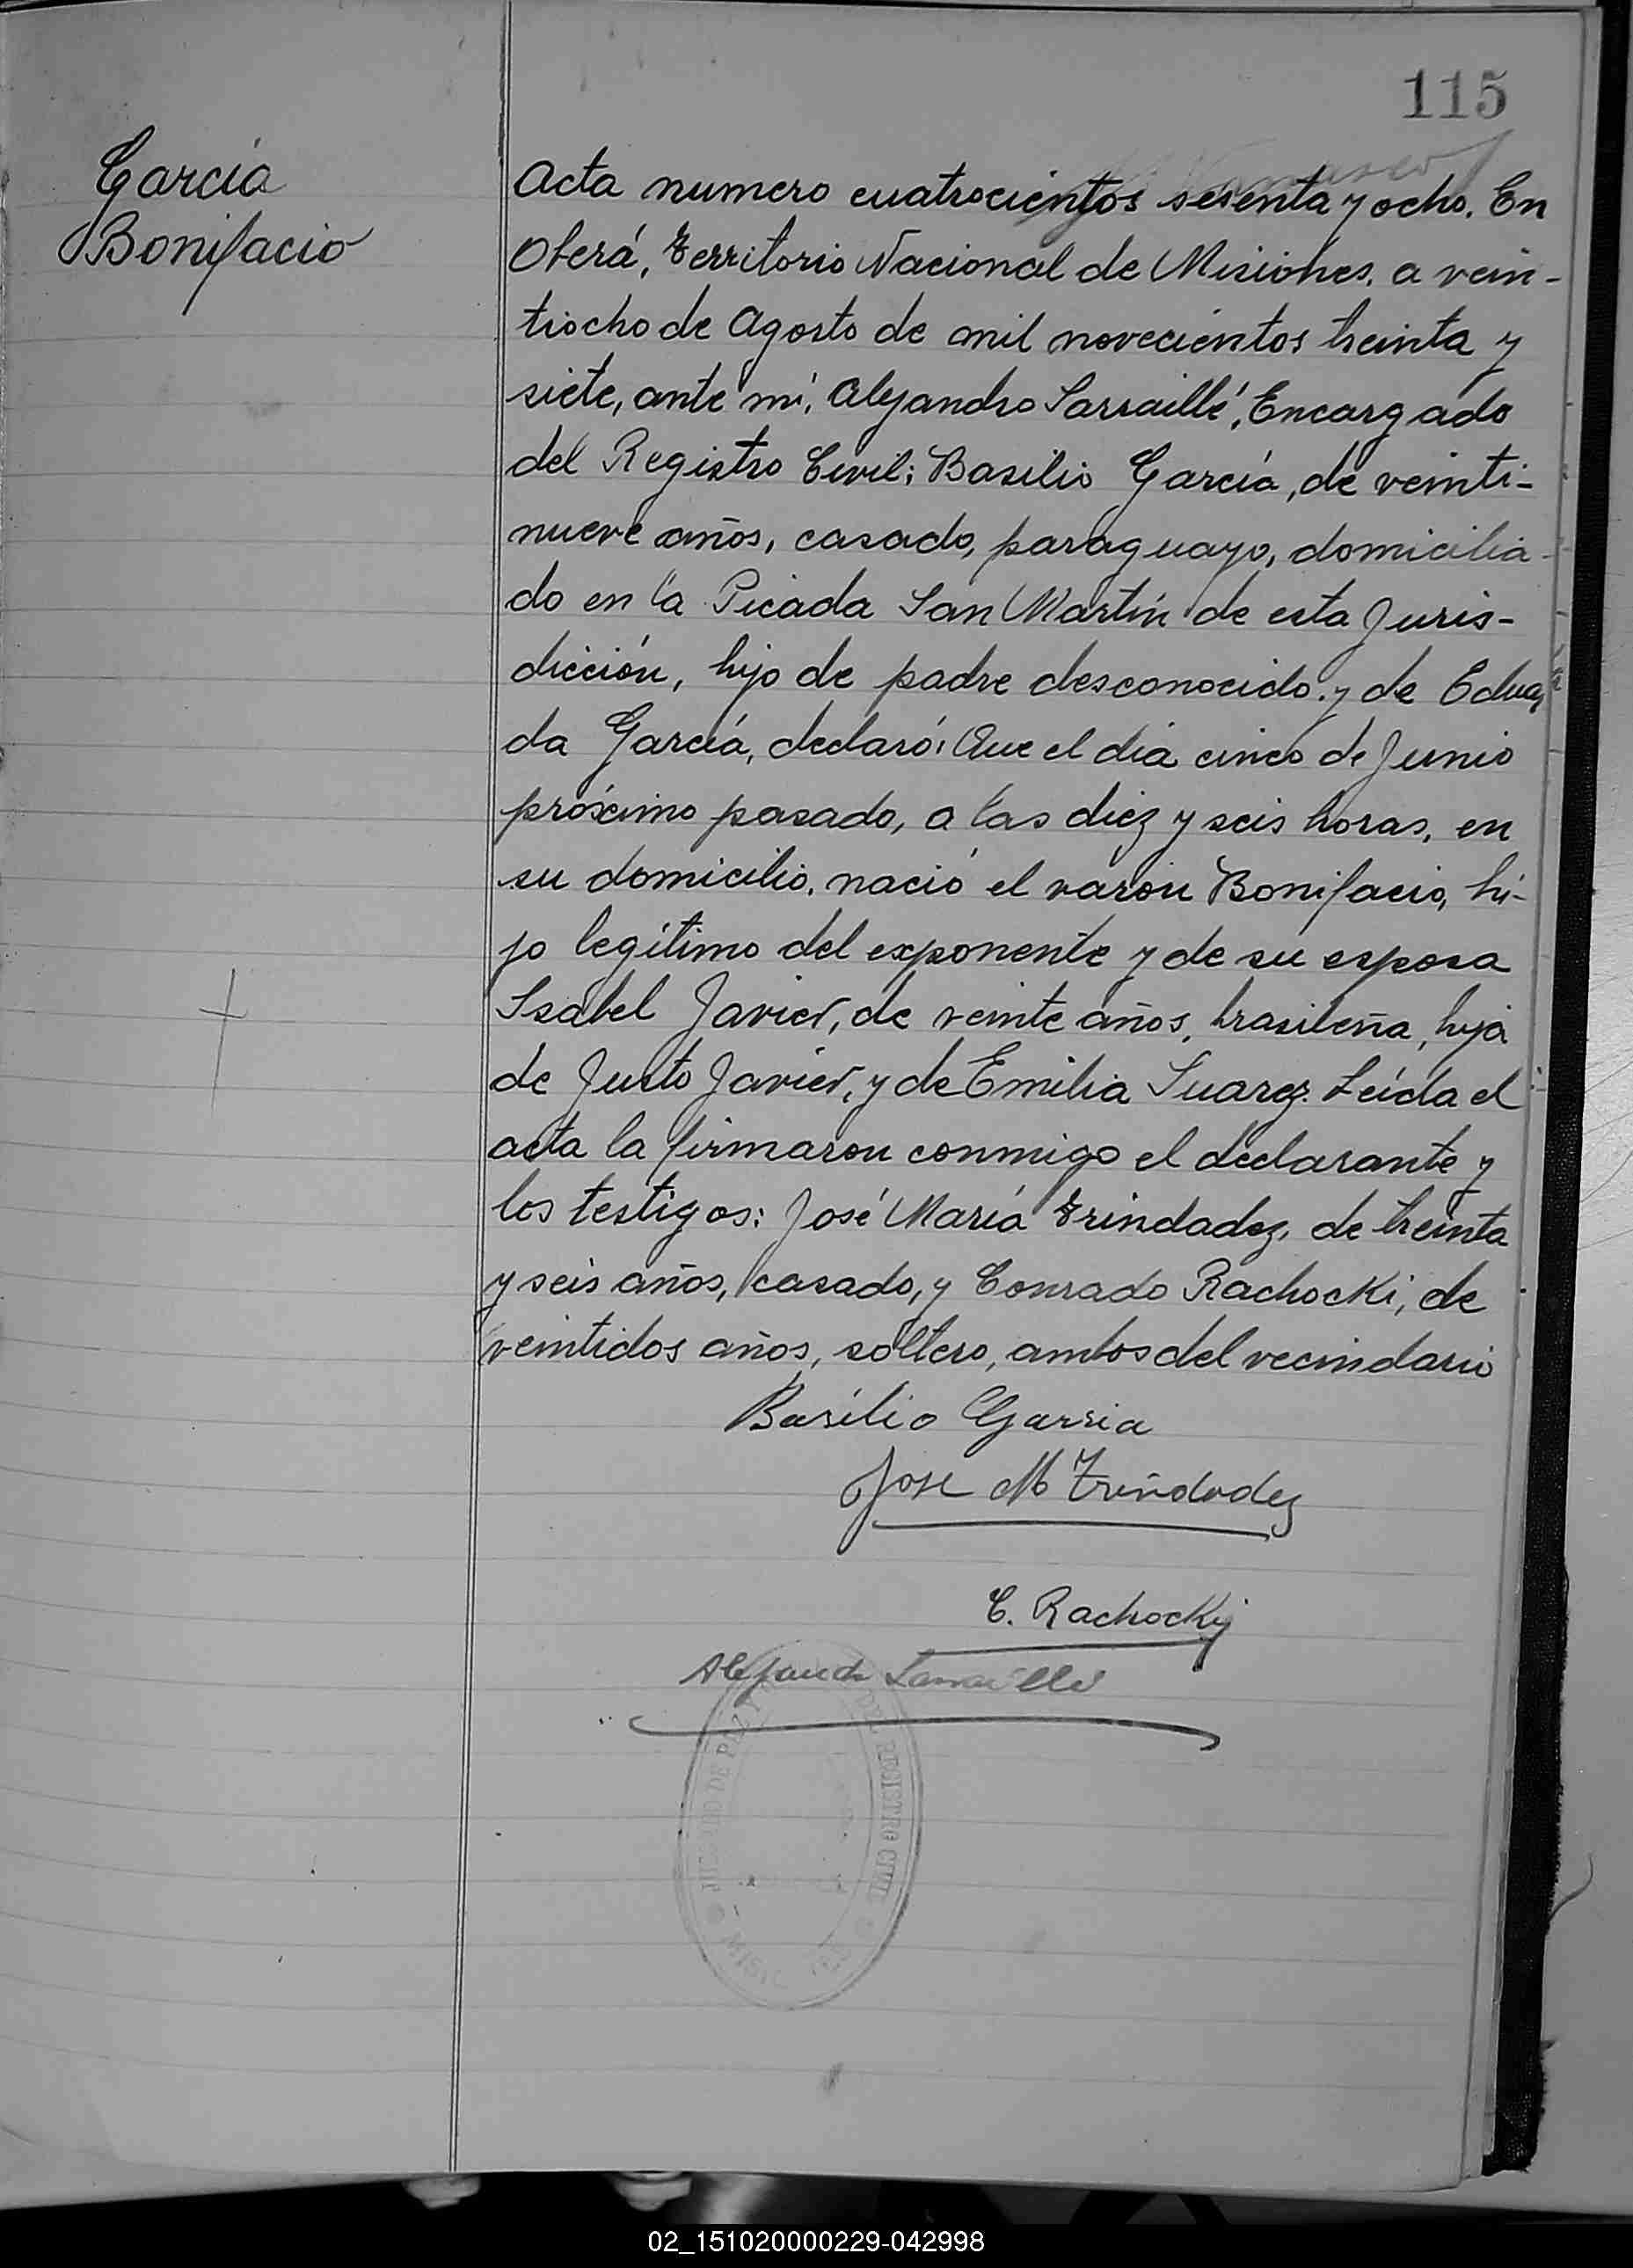 115
García
Bonifacio
Acta numero cuatrocientos sesenta y ocho. En
Oberá, Territorio Nacional de Misiones, a vein-
tiocho de Agosto de mil novecientos treinta y
siete, ante mí, Alejandro Sarraillé, Encargado
del Registro Civil; Basilio García, de veinti-
nueve años, casado, paraguayo, domicilia-
do en la Picada San Martín de esta Juris-
dicción, hijo de padre desconocido y de Eduar
da García, declaró: Que el día cinco de Junio
próximo pasado, a las diez y seis horas, en
su domicilio, nació el varón Bonifacio, hi-
jo legítimo del exponente y de su esposa
Isabel Javier, de veinte años, brasileña, hija
de Justo Javier, y de Emilia Suarez. Leída el
acta la firmaron conmigo el declarante y
los testigos: José María Trindadez, de treinta
y seis años, casado, y Conrado Rachocki, de
veintidos años, soltero, ambos del vecindario
Basilio Garsia
Jose M Trindadez
C. Rachocki
Alejandro Sarraillé
JUZGADO DE PAZ Y DEL REGISTRO CIVIL
02_151020000229-042998